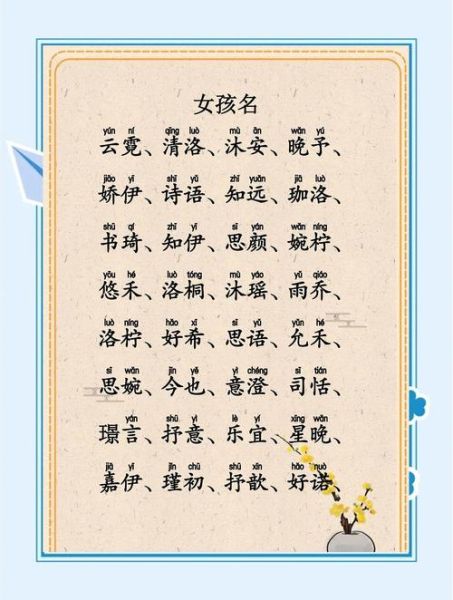 女孩名
yún ní qīng luò mù ān wǎn yú
云霓、清洛、沐安、晚予、
jiāo yī shī yǔ zhī yuǎn jiā luò
娇伊、诗语、知远、珈洛、
shū qí zhī yī sī yán wǎn níng
书琦、知伊、思颜、婉柠、
yōu hé luò tóng mù yáo yǔ qiáo
悠禾、洛桐、沐瑶、雨乔、
luò níng hǎo xī sī yǔ yǔn hé
洛柠、好希、思语、允禾、
sī wǎn jīn yě yì chéng sī
思婉、今也、意澄、司恬、
yán shū yì lè yí xīng wǎn
璟言、抒意、乐宜、星晚、
jiā yī jǐn chū shū xīn hǎo nuò
嘉伊、瑾初、抒歆、好诺